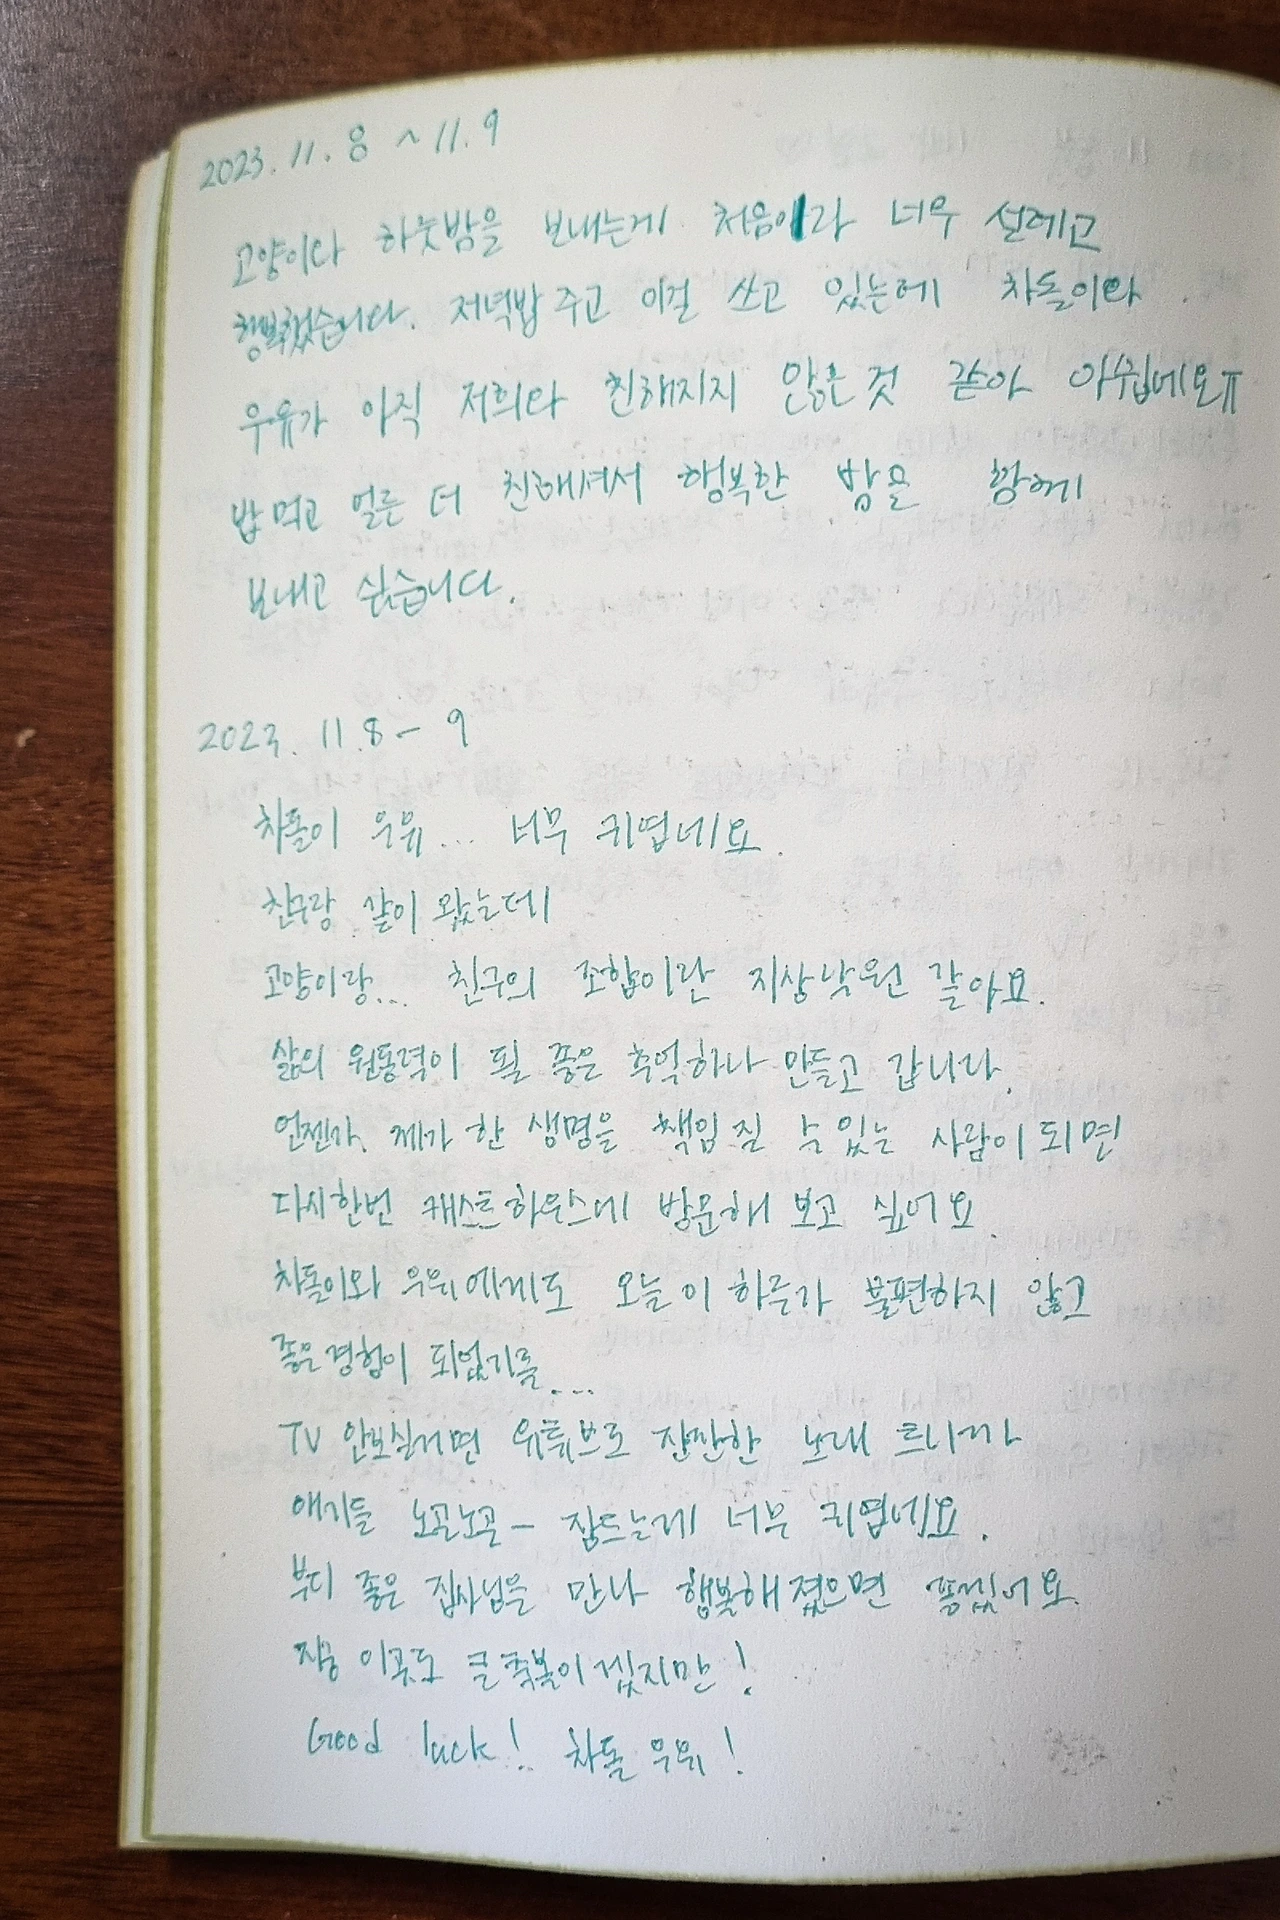 2023. 11. 8 ~ 11. 9
고양이와 하룻밤을 보내는게 처음이라 너무 설레고
행복했습니다. 저녁밥 주고 이걸 쓰고 있는데 차돌이와
우유가 아직 저희와 친해지지 않은것 같아 아쉽네요ㅠ
밥 먹고 얼른 더 친해져서 행복한 밤을 함께
보내고 싶습니다.
2023. 11. 8 - 9
차돌이 우유... 너무 귀엽네요.
친구랑 같이 왔는데
고양이랑... 친구의 조합이란 지상낙원 같아요.
삶의 원동력이 될 좋은 추억하나 만들고 갑니다.
언젠가, 제가 한 생명을 책임 질 수 있는 사람이 되면
다시한번 캐스트하우스에 방문해 보고 싶어요.
차돌이와 우유에게도 오늘 이 하루가 불편하지 않고
좋은 경험이 되었기를...
TV 안보실거면 유튜브로 잔잔한 노래 트니까
애기들 노곤노곤 - 잠드는게 너무 귀엽네요.
부디 좋은 집사님을 만나 행복해 졌으면 좋겠어요.
지금 이곳도 큰 축복이겠지만!
Good luck! 차돌 우유!